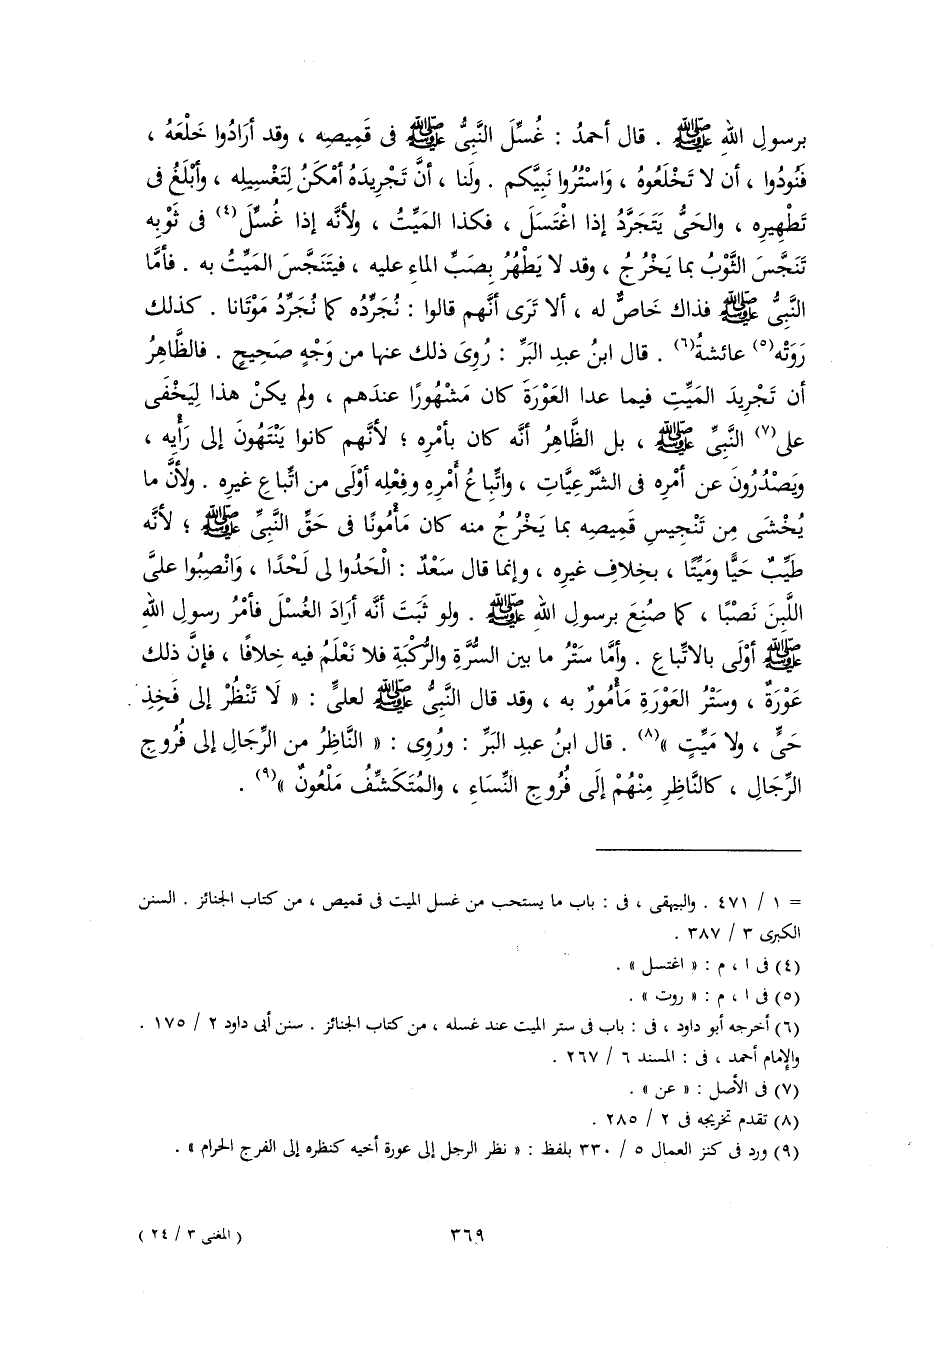 برسولِ اللهِ ﷺ . قال أحمدُ : غُسِّلَ النَّبِىُّ ﷺ فى قَمِيصِه ، وقد أرَادُوا خَلْعَهُ ،
فَنُودُوا ، أن لا تَخْلَعُوهُ ، وَاسْتُرُوا نَبِيَّكم . ولَنا ، أنَّ تَجْرِيدَهُ أمْكَنُ لِتَغْسِيلِه ، وأبْلَغُ فى
تَطْهِيرِه ، والحَىُّ يَتَجَرَّدُ إذا اغْتَسَلَ ، فكذا المَيِّتُ ، ولأنَّه إذا غُسِّلَ(٤) فى ثَوْبِه
تَنَجَّسَ الثَّوْبُ بما يَخْرُجُ ، وقد لا يَطْهُرُ بِصَبِّ الماءِ عليه ، فيتَنَجَّسَ المَيِّتُ به . فأمَّا
النَّبِىُّ ﷺ فذاك خَاصٌّ له ، ألا تَرَى أنَّهم قالوا : نُجَرِّدُه كما نُجَرِّدُ مَوْتَانا . كذلك
رَوَتْه(٥) عائشةُ(٦) . قال ابنُ عبدِ البَرِّ : رُوِىَ ذلك عنها من وَجْهٍ صَحِيحٍ . فالظَّاهِرُ
أن تَجْرِيدَ المَيِّتِ فيما عدا العَوْرَةَ كان مَشْهُورًا عندَهم ، ولم يكنْ هذا لِيَخْفَى
على(٧) النَّبِىِّ ﷺ ، بل الظَّاهِرُ أنَّه كان بأمْرِه ؛ لأنَّهم كانوا يَنْتَهُونَ إلى رَأْيِه ،
ويَصْدُرُونَ عن أمْرِه فى الشَّرْعِيَّاتِ ، واتِّباعُ أمْرِهِ وفِعْلِه أوْلَى من اتِّباعِ غيرِه . ولأنَّ ما
يُخْشَى مِن تَنْجِيسِ قَمِيصِه بما يَخْرُجُ منه كان مَأْمُونًا فى حَقِّ النَّبِىِّ ﷺ ؛ لأنَّه
طَيِّبٌ حَيًّا ومَيِّتًا ، بخِلافِ غيرِه ، وإنما قال سَعْدٌ : الْحَدُوا لى لَحْدًا ، وَانْصِبُوا علىَّ
اللَّبِنَ نَصْبًا ، كما صُنِعَ برسولِ اللهِ ﷺ . ولو ثَبَتَ أنَّه أرَادَ الغُسْلَ فأمْرُ رسولِ اللهِ
ﷺ أوْلَى بالاتِّباعِ . وأمَّا سَتْرُ ما بين السُّرَّةِ والرُّكْبَةِ فلا نَعْلَمُ فيه خِلافًا ، فإنَّ ذلك
عَوْرَةٌ ، وسَتْرُ العَوْرَةِ مَأْمُورٌ به ، وقد قال النَّبِىُّ ﷺ لعلىٍّ : « لَا تَنْظُرْ إلى فَخِذِ
حَىٍّ ، ولا مَيِّتٍ »(٨) . قال ابنُ عبدِ البَرِّ : ورُوِى : « النَّاظِرُ من الرِّجَالِ إلى فُرُوجِ
الرِّجَالِ ، كالنَّاظِرِ مِنْهُمْ إلَى فُرُوجِ النِّسَاءِ ، والمُتَكَشِّفُ مَلْعُونٌ »(٩) .
= ١ / ٤٧١ . والبيهقى ، فى : باب ما يستحب من غسل الميت فى قميص ، من كتاب الجنائز . السنن
الكبرى ٣ / ٣٨٧ .
(٤) فى ا ، م : « اغتسل » .
(٥) فى ا ، م : « روت » .
(٦) أخرجه أبو داود ، فى : باب فى ستر الميت عند غسله ، من كتاب الجنائز . سنن أبى داود ٢ / ١٧٥ .
والإمام أحمد ، فى : المسند ٦ / ٢٦٧ .
(٧) فى الأصل : « عن » .
(٨) تقدم تخريجه فى ٢ / ٢٨٥ .
(٩) ورد فى كنز العمال ٥ / ٣٣٠ بلفظ : « نظر الرجل إلى عورة أخيه كنظره إلى الفرج الحرام » .
٣٦٩
( المغنى ٣ / ٢٤ )